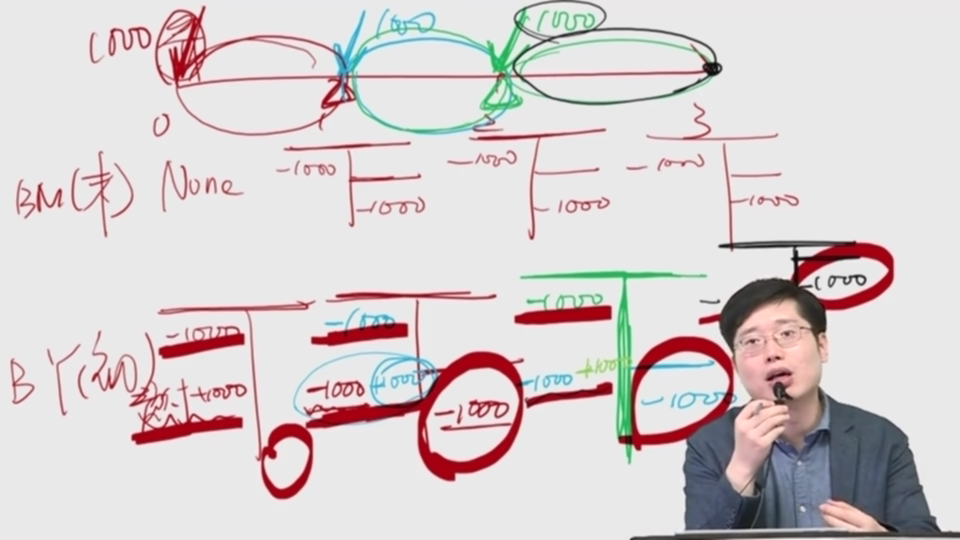 1000 1000 1000
0 2 3
BM(末) None -1000 -1000 -1000
-1000 -1000 -1000
-1000
-1000 -1000 -1000
BY(初) +1000 -1000 +1000 -1000 +1000
-1000 -1000